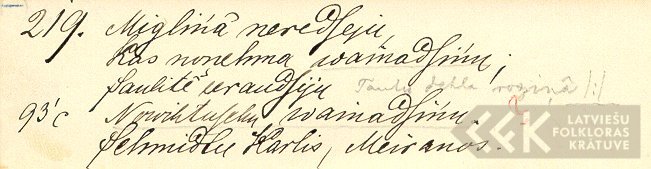 219. Migliņâ neredseju,
Kas noņehma waiņadsiņu;
Saulitê eraudsiju
Tautu dehla rociņâ /:/
93'c Nowihtuschu waiņadsiņu.
Schmidtu Karlis, Meiranos.
LFK LATVIEŠU
FOLKLORAS
KRĀTUVE